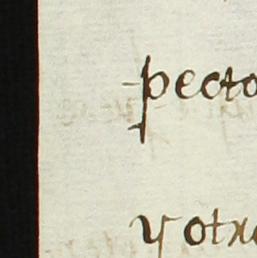 pecto
y otro